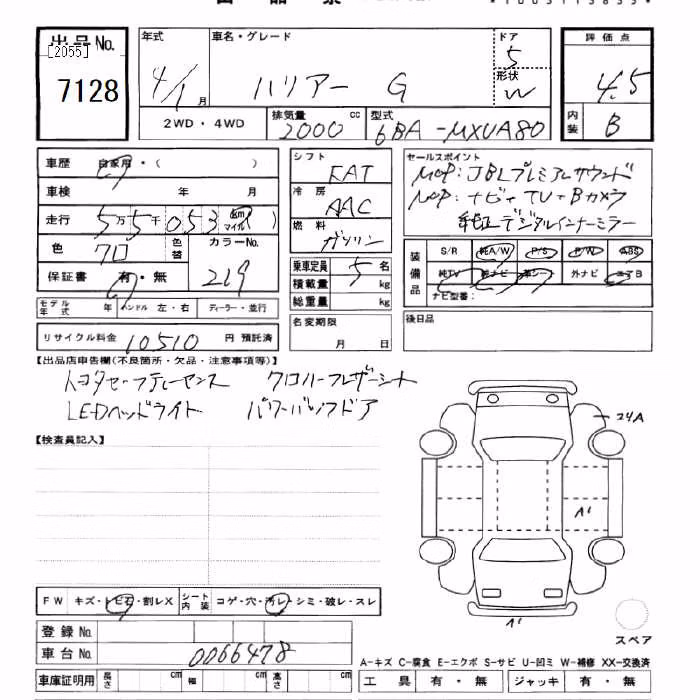 出品No.
[2055]
7128
年式 車名・グレード ドア 評価点
4/1月 ハリアー G 5
形状 W
4.5
2WD・4WD 排気量 2000 cc 型式 6BA-MXUA80 内装 B
車歴 自家用・( )
シフト FAT
セールスポイント
MOP:JBLプレミアムサウンド
車検 年 月
冷房 AAC
MOP:ナビ+TV+Bカメラ
走行 5万5千053 km マイル )
燃料 ガソリン
純正デジタルインナーミラー
色 クロ 色替 カラーNo. 219
乗車定員 5 名
装備品 S/R 純A/W P/S P/W ABS
保証書 有・無
積載量 kg
純TV 純ナビ 革シート 外ナビ エアB
総重量 kg
ナビ型番:
モデル年式 年 ハンドル 左・右 ディーラー・並行
名変期限 月 日
後日品
リサイクル料金 10510 円 預託済
【出品店申告欄(不良箇所・欠品・注意事項等)】
トヨタセーフティーセンス クロハーフレザーシート
LEDヘッドライト パワーバックドア
【検査員記入】
24A
A1
A1
FW キズ・トビ石・割レX シート内装 コゲ・穴・汚レ・シミ・破レ・スレ
スペア
登録No.
車台No. 0066478
A-キズ C-腐食 E-エクボ S-サビ U-凹ミ W-補修 XX-交換済
車庫証明用 長さ cm 幅 cm 高さ cm
工具 有・無 ジャッキ 有・無